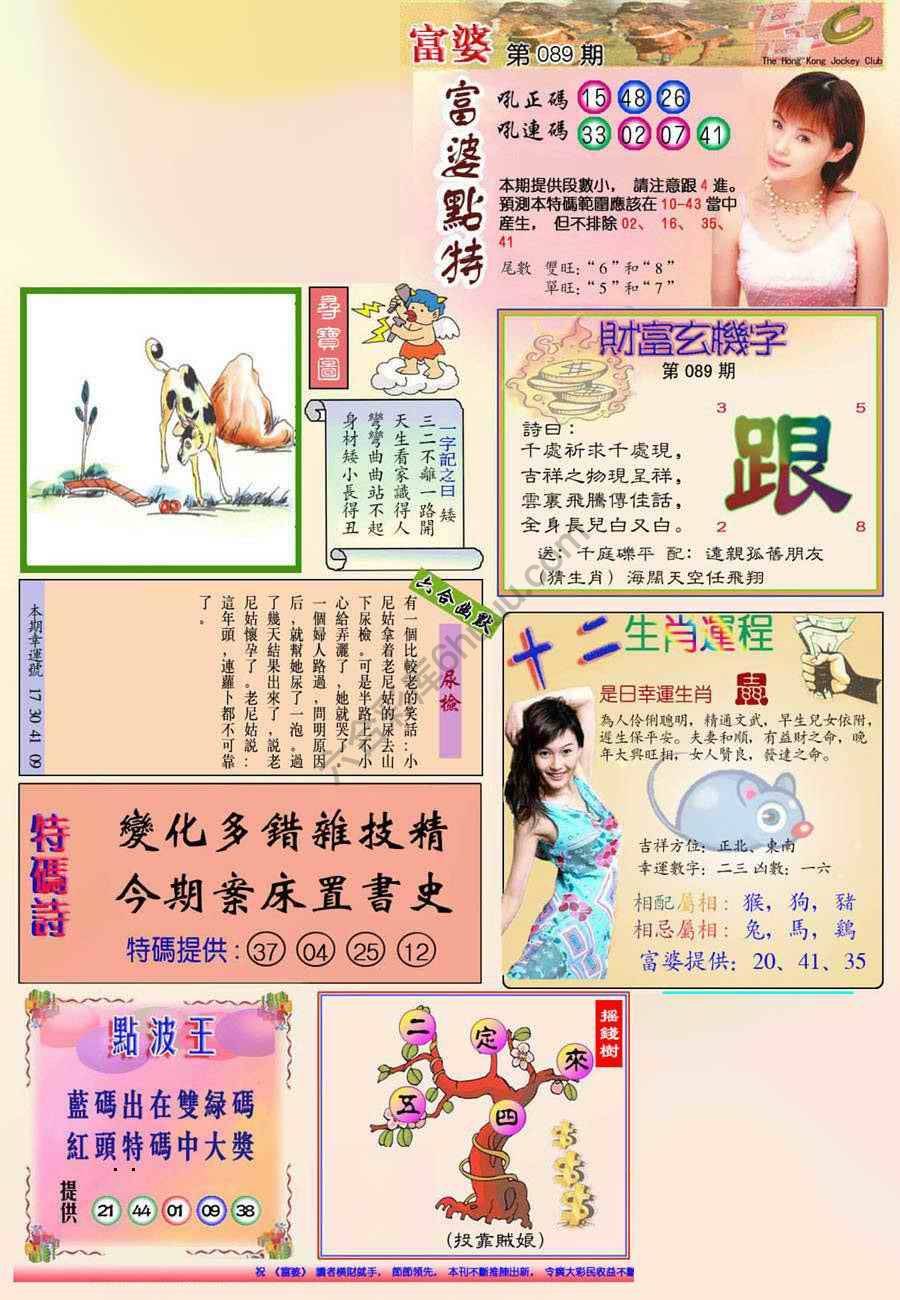 富婆 第 089 期
The Hong Kong Jockey Club
富婆點特
吼正碼 15 48 26
吼連碼 33 02 07 41
本期提供段數小， 請注意跟 4 進。
預測本特碼範圍應該在 10-43 當中
産生， 但不排除 02、 16、 35、
41
尾數 雙旺:“6”和“8”
單旺:“5”和“7”
尋寶圖
一字記之曰 矮
三二不離一路開
天生看家識得人
彎彎曲曲站不起
身材矮小長得丑
財富玄機字
第 089 期
3 5
跟
2 8
詩曰:
千處祈求千處現，
吉祥之物現呈祥，
雲裏飛騰傳佳話，
全身長兒白又白。
送: 千庭礫平 配: 遠親孤舊朋友
(猜生肖) 海闊天空任飛翔
六合幽默
尿檢
有一個比較老的笑話:小
尼姑拿着老尼姑的尿去山
下尿檢。可是半路上不小
心給弄灑了,她就哭了
一個婦人路過,問明原因
后,就幫她尿了一泡。過
了幾天結果出來了,説老
尼姑懷孕了。老尼姑説:
這年頭,連蘿卜都不可靠
了。
本期幸運號 17 30 41 09
十二生肖運程
是日幸運生肖 鼠
為人伶俐聰明，精通文武，早生兒女依附，
遲生保平安。夫妻和順，有益財之命，晚
年大興旺相，女人賢良，發達之命。
吉祥方位: 正北、東南
幸運數字: 二三 凶數: 一六
相配屬相: 猴，狗，豬
相忌屬相: 兔，馬，鷄
富婆提供: 20、41、35
特碼詩
變化多錯雜技精
今期案床置書史
特碼提供: 37 04 25 12
點波王
藍碼出在雙緑碼
紅頭特碼中大獎
提供 21 44 01 09 38
搖錢樹
二 定 來
五 四
(投靠賊娘)
祝 《富婆》 讀者横財就手， 節節領先， 本刊不斷推陳出新， 令廣大彩民收益不斷
六合彩库6huu.com